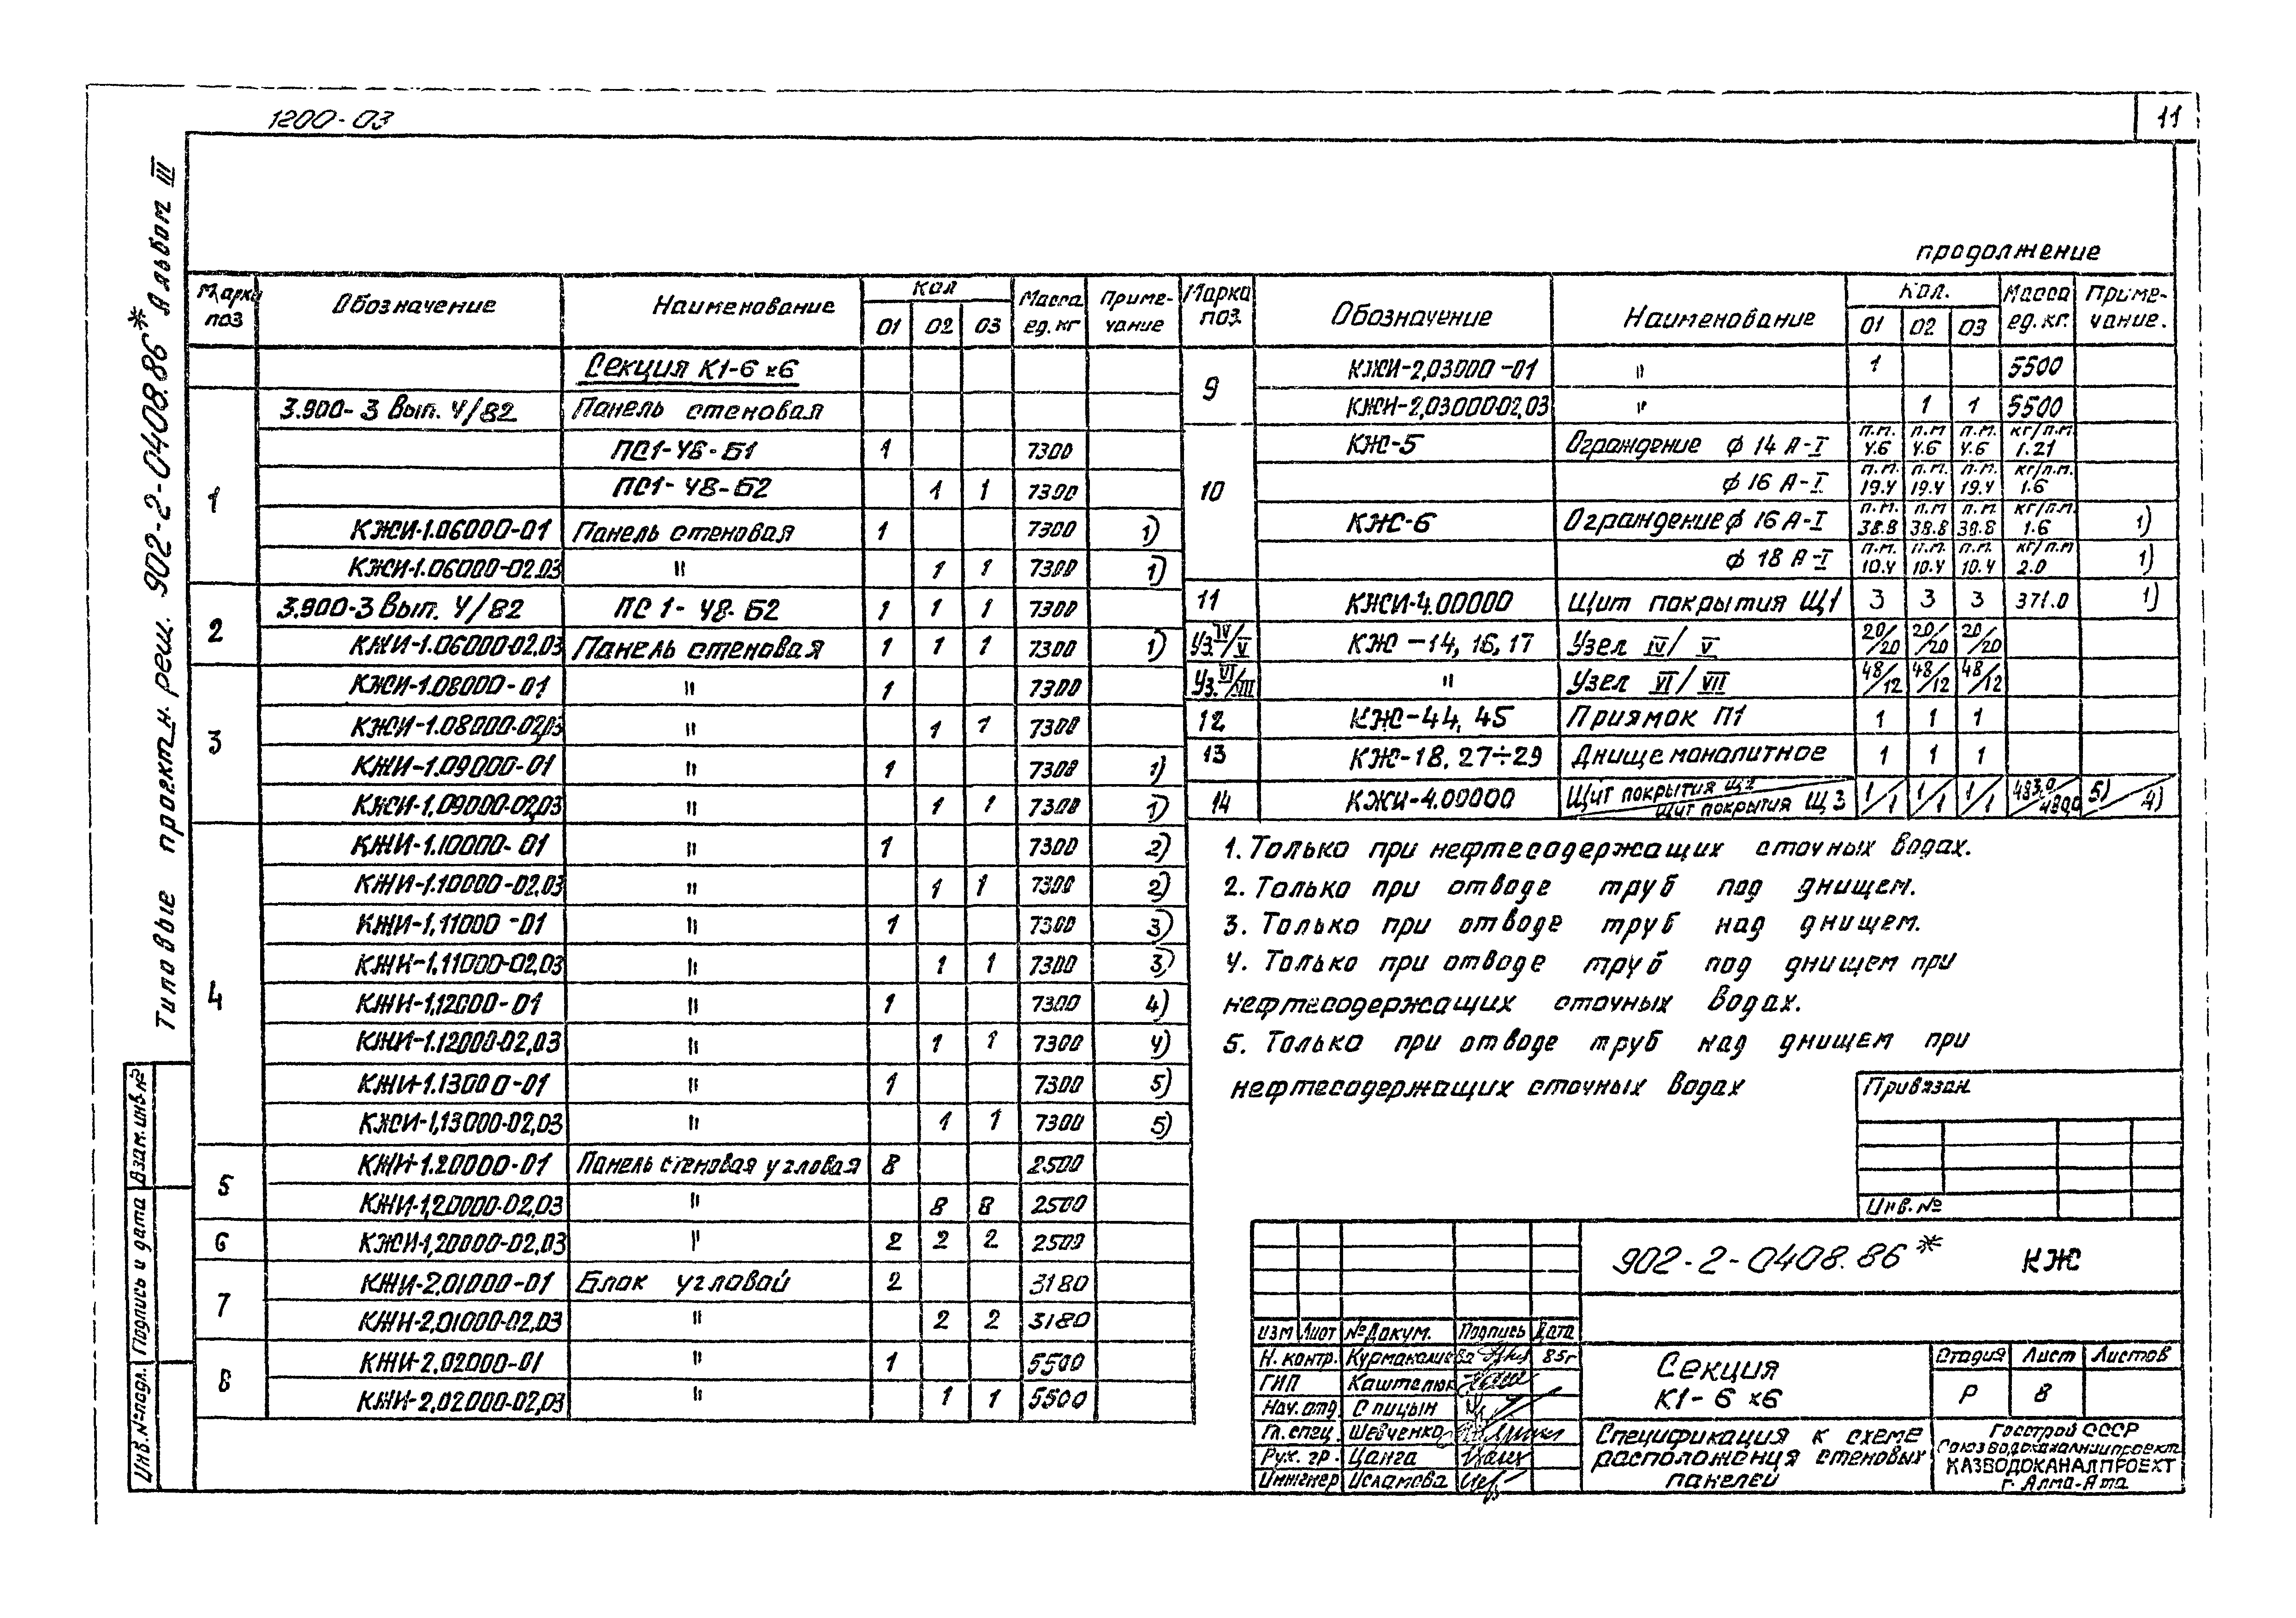 1200-03
11
Типовые проектн. реш. 902-2-0408.86* Альбом III
продолжение
Марка поз | Обозначение | Наименование | Кол 01 02 03 | Масса ед. кг | Приме-чание
Секция К1-6х6
1
3.900-3 Вып. 4/82 Панель стеновая
ПС1-48-Б1 1 7300
ПС1-48-Б2 1 1 7300
КЖИ-1.06000-01 Панель стеновая 1 7300 1)
КЖИ-1.06000-02.03 " 1 1 7300 1)
2
3.900-3 Вып. 4/82 ПС1-48-Б2 1 1 1 7300
КЖИ-1.06000-02.03 Панель стеновая 1 1 1 7300 1)
3
КЖИ-1.08000-01 " 1 7300
КЖИ-1.08000-02,03 " 1 1 7300
КЖИ-1.09000-01 " 1 7300 1)
КЖИ-1,09000-02,03 " 1 1 7300 1)
4
КЖИ-1.10000-01 " 1 7300 2)
КЖИ-1.10000-02,03 " 1 1 7300 2)
КЖИ-1,11000-01 " 1 7300 3)
КЖИ-1,11000-02,03 " 1 1 7300 3)
КЖИ-1,12000-01 " 1 7300 4)
КЖИ-1.12000-02,03 " 1 1 7300 4)
КЖИ-1.13000-01 " 1 7300 5)
КЖИ-1,13000-02,03 " 1 1 7300 5)
5
КЖИ-1.20000-01 Панель стеновая угловая 8 2500
КЖИ-1,20000-02,03 " 8 8 2500
6 КЖИ-1,20000-02,03 " 2 2 2 2500
7
КЖИ-2.01000-01 Блок угловой 2 3180
КЖИ-2,01000-02,03 " 2 2 3180
8
КЖИ-2,02000-01 " 1 5500
КЖИ-2,02000-02,03 " 1 1 5500
Марка поз. | Обозначение | Наименование | Кол. 01 02 03 | Масса ед. кг. | Приме-чание.
9
КЖИ-2,03000-01 " 1 5500
КЖИ-2,03000-02,03 " 1 1 5500
10
КЖ-5 Ограждение ф 14 А-I п.м. 4.6 п.м 4.6 п.м. 4.6 кг/п.м 1.21
ф 16 А-I п.м. 19.4 п.м. 19.4 п.м. 19.4 кг/п.м. 1.6
КЖ-6 Ограждение ф 16 А-I п.м. 38.8 п.м 38.8 п.м. 38.8 кг/п.м. 1.6 1)
ф 18 А-I п.м. 10.4 п.м. 10.4 п.м. 10.4 кг/п.м 2.0 1)
11 КЖИ-4.00000 Щит покрытия Щ1 3 3 3 371.0 1)
Уз. IV/V КЖ-14, 16, 17 Узел IV/V 20/20 20/20 20/20
Уз. VI/VII " Узел VI/VII 48/12 48/12 48/12
12 КЖ-44, 45 Приямок П1 1 1 1
13 КЖ-18, 27÷29 Днище монолитное 1 1 1
14 КЖИ-4.00000 Щит покрытия Щ2/Щит покрытия Щ3 1/1 1/1 1/1 5)/4)
1. Только при нефтесодержащих сточных водах.
2. Только при отводе труб под днищем.
3. Только при отводе труб над днищем.
4. Только при отводе труб под днищем при
нефтесодержащих сточных водах.
5. Только при отводе труб над днищем при
нефтесодержащих сточных водах
Привязан
Инв. №
902-2-0408.86* КЖ
Изм Лист № Докум. Подпись Дата
Н. контр. Курмакалиева 85г
ГИП Каштелюк
Нач. отд Спицын
Гл. спец. Шевченко
Рук. гр. Цанга
Инженер Исламова
Секция
К1-6х6
Стадия Лист Листов
Р 8
Спецификация к схеме
расположения стеновых
панелей
Госстрой СССР
Союзводоканалниипроект
КАЗВОДОКАНАЛПРОЕКТ
г. Алма-Ата
Взам. инв. №
Подпись и дата
Инв. № подл.